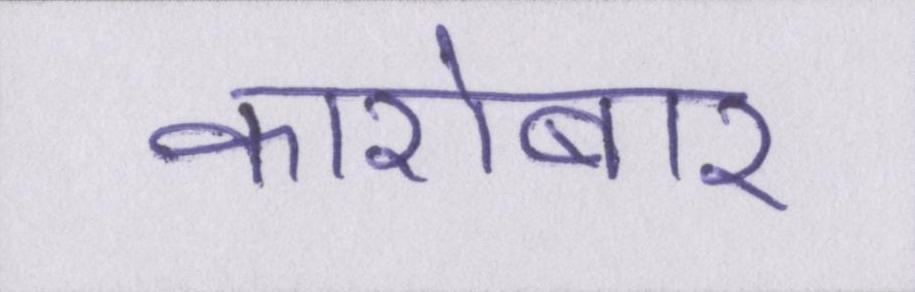 कारोबार